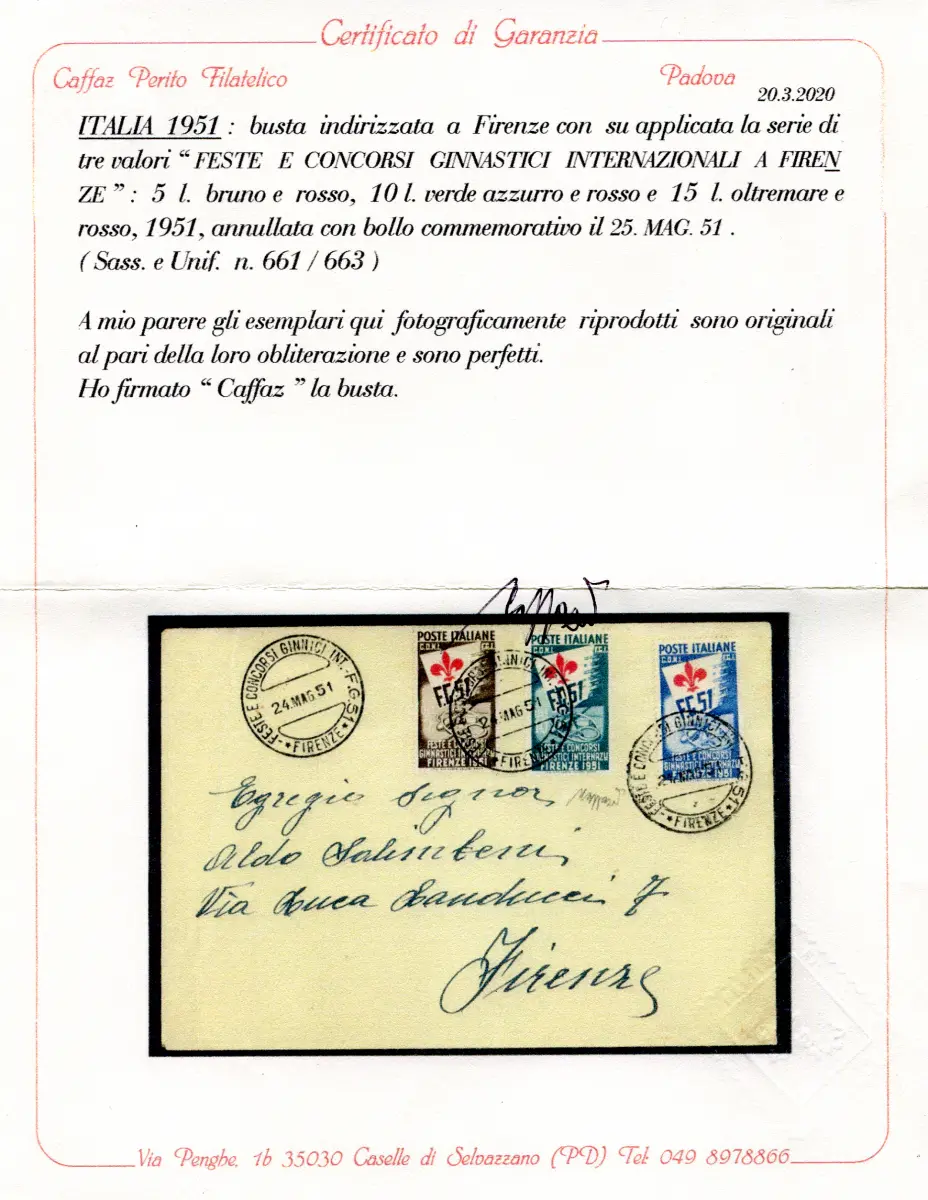 Certificato di Garanzia
Caffaz Perito Filatelico
Padova
20.3.2020
ITALIA 1951 : busta indirizzata a Firenze con su applicata la serie di
tre valori “ FESTE E CONCORSI GINNASTICI INTERNAZIONALI A FIREN
ZE ” : 5 l. bruno e rosso, 10 l. verde azzurro e rosso e 15 l. oltremare e
rosso, 1951, annullata con bollo commemorativo il 25. MAG. 51 .
( Sass. e Unif. n. 661 / 663 )
A mio parere gli esemplari qui fotograficamente riprodotti sono originali
al pari della loro obliterazione e sono perfetti.
Ho firmato “ Caffaz ” la busta.
Caffaz
FESTE E CONCORSI GINNICI INT. - F.G.51
24.MAG.51
* FIRENZE *
POSTE ITALIANE
C.O.N.I. F.G.I.
F.G.51
FESTE E CONCORSI
GINNASTICI INTERNAZ.LI
FIRENZE 1951
POSTE ITALIANE
F.G.51
FESTE E CONCORSI
GINNASTICI INTERNAZ.LI
FIRENZE 1951
POSTE ITALIANE
F.G.51
GINNASTICI INTERNAZ.LI
FIRENZE 1951
24.MAG.51
FIRENZE
* FIRENZE *
Egregio Signor
Aldo Salimbeni
Via Luca Landucci 7
Firenze
Via Penghe, 1b 35030 Caselle di Selvazzano (PD) Tel: 049 8978866